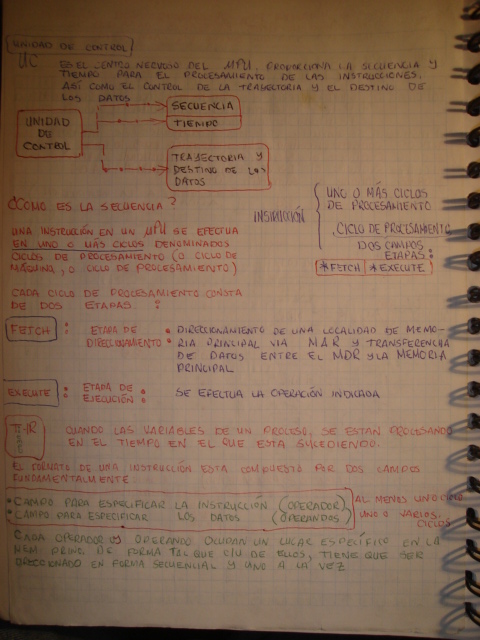 UNIDAD DE CONTROL
UC ES EL CENTRO NERVIOSO DEL MPU. PROPORCIONA LA SECUENCIA Y
TIEMPO PARA EL PROCESAMIENTO DE LAS INSTRUCCIONES,
ASÍ COMO EL CONTROL DE LA TRAYECTORIA Y EL DESTINO DE
LOS DATOS
UNIDAD
DE
CONTROL
SECUENCIA
TIEMPO
TRAYECTORIA Y
DESTINO DE LOS
DATOS
¿COMO ES LA SECUENCIA?
UNA INSTRUCCIÓN EN UN MPU SE EFECTUA
EN UNO O MÁS CICLOS DENOMINADOS
CICLOS DE PROCESAMIENTO (O CICLO DE
MÁQUINA, O CICLO DE PROCESAMIENTO)
INSTRUCCIÓN
UNO O MÁS CICLOS
DE PROCESAMIENTO
CICLO DE PROCESAMIENTO
DOS CAMPOS
ETAPAS:
*FETCH *EXECUTE
CADA CICLO DE PROCESAMIENTO CONSTA
DE DOS ETAPAS. :
FETCH : ETAPA DE DIRECCIONAMIENTO : DIRECCIONAMIENTO DE UNA LOCALIDAD DE MEMO-
RIA PRINCIPAL VIA MAR Y TRANSFERENCIA
DE DATOS ENTRE EL MDR Y LA MEMORIA
PRINCIPAL
EXECUTE : ETAPA DE EJECUCIÓN : SE EFECTUA LA OPERACIÓN INDICADA
CUANDO LAS VARIABLES DE UN PROCESO, SE ESTAN PROCESANDO
EN EL TIEMPO EN EL QUE ESTA SUCEDIENDO.
EL FORMATO DE UNA INSTRUCCIÓN ESTA COMPUESTO POR DOS CAMPOS
FUNDAMENTALMENTE
• CAMPO PARA ESPECIFICAR LA INSTRUCCIÓN (OPERADOR)
• CAMPO PARA ESPECIFICAR LOS DATOS (OPERANDOS)
AL MENOS UN CICLO
UNO O VARIOS
CICLOS
CADA OPERADOR Y OPERANDO OCUPAN UN LUGAR ESPECÍFICO EN LA
MEM. PRINC. DE FORMA TAL QUE C/U DE ELLOS, TIENE QUE SER
DIRECCIONADO EN FORMA SECUENCIAL Y UNO A LA VEZ